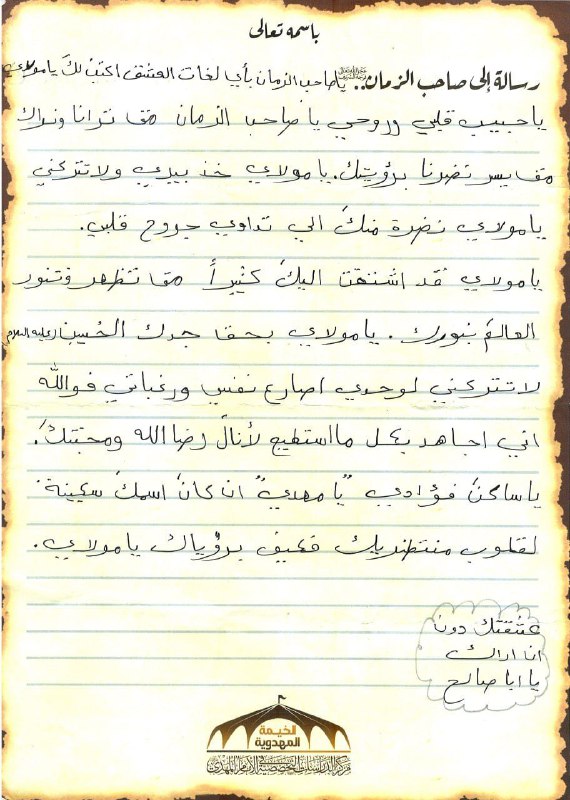 باسمه تعالى
رسالة إلى صاحب الزمان.. ياصاحب الزمان بأي لغات العشق اكتب لك يامولاي
ياحبيب قلبي وروحي ياصاحب الزمان متى ترانا ونراك
متى يسر نضرنا برؤيتك. يامولاي خذ بيدي ولاتتركني
يامولاي نضرة منك الي تداوي جروح قلبي.
يامولاي قد اشتقت اليك كثيراً متى تظهر وتنور
العالم بنورك. يامولاي بحق جدك الحُسين (عليه السلام)
لاتتركني لوحدي اصارع نفسي ورغباتي فوالله
اني اجاهد بكل مااستطيع لأنال رضا الله ومحبتك.
ياساكن فؤادي "يامهدي" ان كان اسمك سكينة
لقلوب منتظريك فكيف برؤياك يامولاي.
عشقتك دون
انا اراك
يا ابا صالح
الخيمة
المهدوية
مركز الدراسات التخصصية في الإمام المهدي